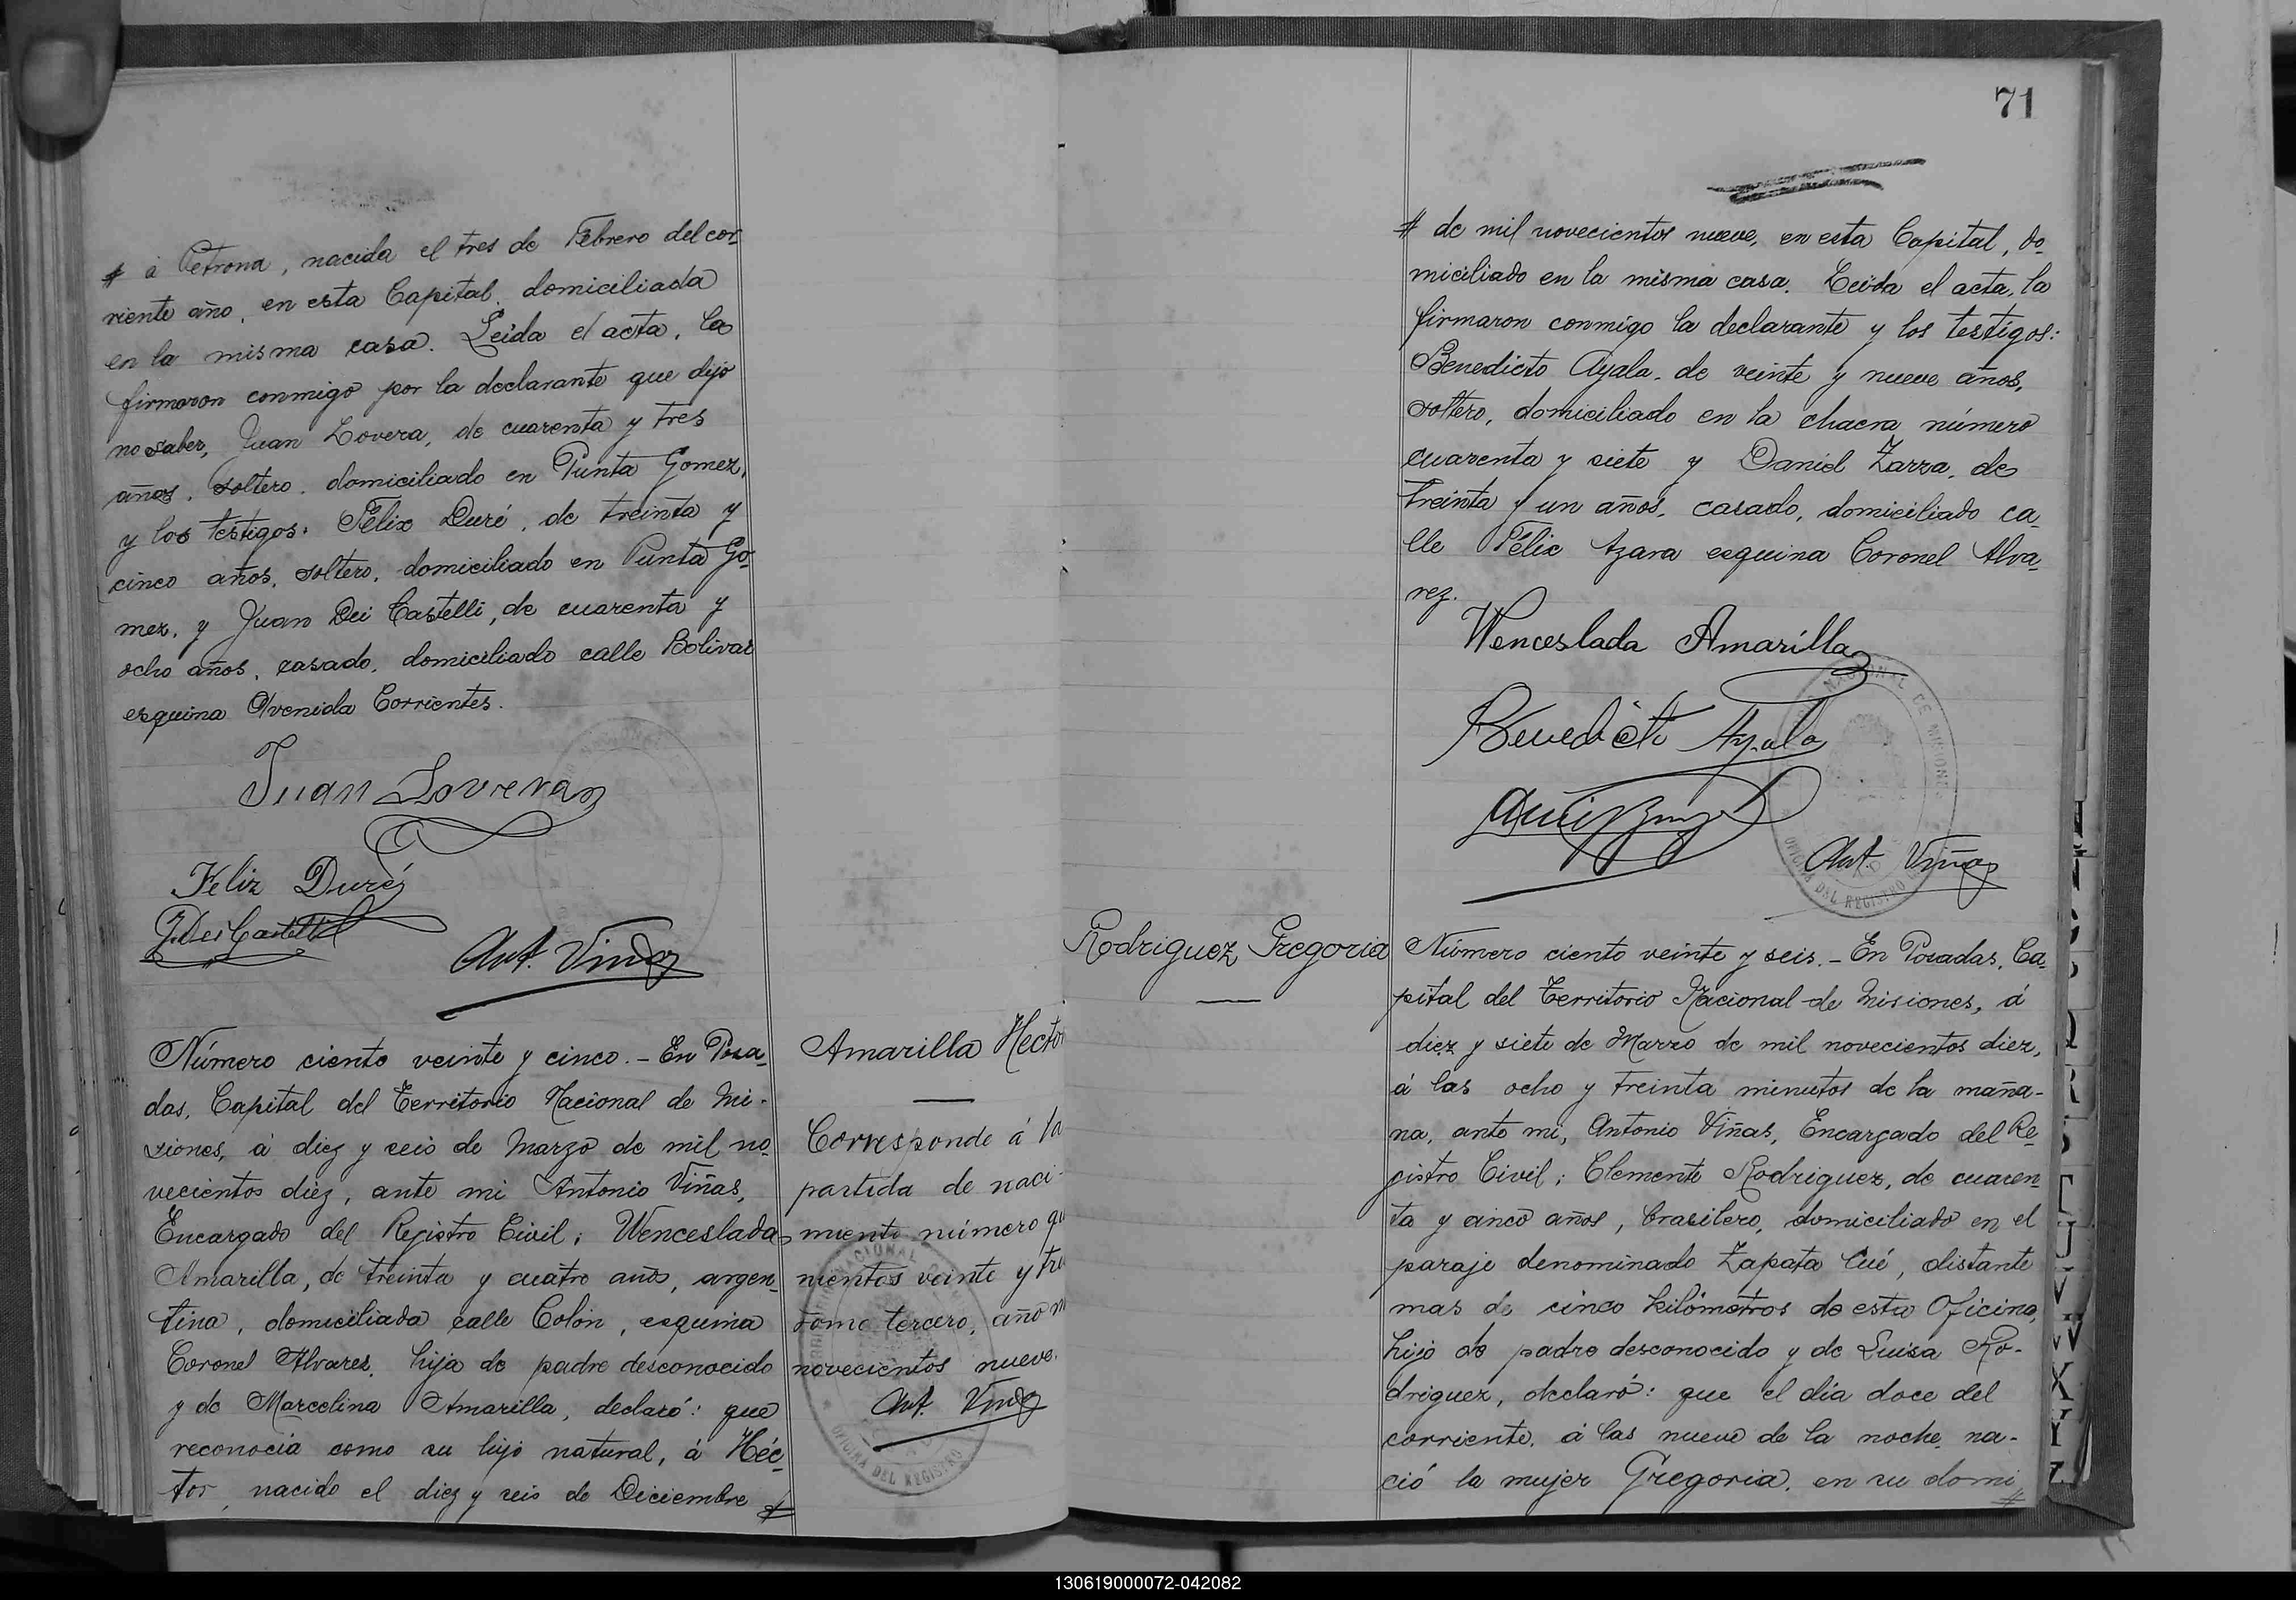 # á Petrona, nacida el tres de Febrero del cor-
riente año, en esta Capital, domiciliada
en la misma casa. Leida el acta, la
firmaron conmigo por la declarante que dijo
no saber, Juan Lovera, de cuarenta y tres
años, soltero, domiciliado en Punta Gomez,
y los testigos: Félix Duré, de treinta y
cinco años, soltero, domiciliado en Punta Go-
mez, y Juan Dei Castelli, de cuarenta y
ocho años, casado, domiciliado calle Bolivar
esquina Avenida Corrientes.
Juan Lovera
Feliz Duré
J. Dei Castelli
Ant. Viñas
Número ciento veinte y cinco. - En Posa-
das, Capital del Territorio Nacional de Mi-
siones, á diez y seis de Marzo de mil no-
vecientos diez, ante mi Antonio Viñas,
Encargado del Registro Civil; Wenceslada
Amarilla, de treinta y cuatro años, argen-
tina, domiciliada calle Colón, esquina
Coronel Alvares, hija de padre desconocido
y de Marcelina Amarilla, declaró: que
reconocia como su hijo natural, á Héc-
tor, nacido el diez y seis de Diciembre #
Amarilla Hector
Corresponde á la
partida de naci-
miento número qu
nientos veinte y tre
tomo tercero, año m
novecientos nueve.
Ant. Viñas
OFICINA DEL REGISTRO
71
# de mil novecientos nueve, en esta Capital, do-
miciliado en la misma casa. Leida el acta, la
firmaron conmigo la declarante y los testigos:
Benedicto Ayala, de veinte y nueve años,
soltero, domiciliado en la chacra número
cuarenta y siete y Daniel Zarza, de
treinta y un años, casado, domiciliado ca-
lle Félix Azara esquina Coronel Alva-
rez.
Wenceslada Amarilla
Benedicto Ayala
Ant. Viñas
NACIONAL DE MISIONES
OFICINA DEL REGISTRO
Rodriguez Gregoria
Número ciento veinte y seis. - En Posadas, Ca-
pital del Territorio Nacional de Misiones, á
diez y siete de Marzo de mil novecientos diez,
á las ocho y treinta minutos de la maña-
na, ante mi, Antonio Viñas, Encargado del Re-
gistro Civil; Clemente Rodriguez, de cuaren-
ta y cinco años, brasilero, domiciliado en el
paraje denominado Zapata Cué, distante
mas de cinco kilómetros de esta Oficina,
hijo de padre desconocido y de Luisa Ro-
driguez, declaró: que el día doce del
corriente, á las nueve de la noche, na-
ció la mujer Gregoria, en su domi
#
130619000072-042082